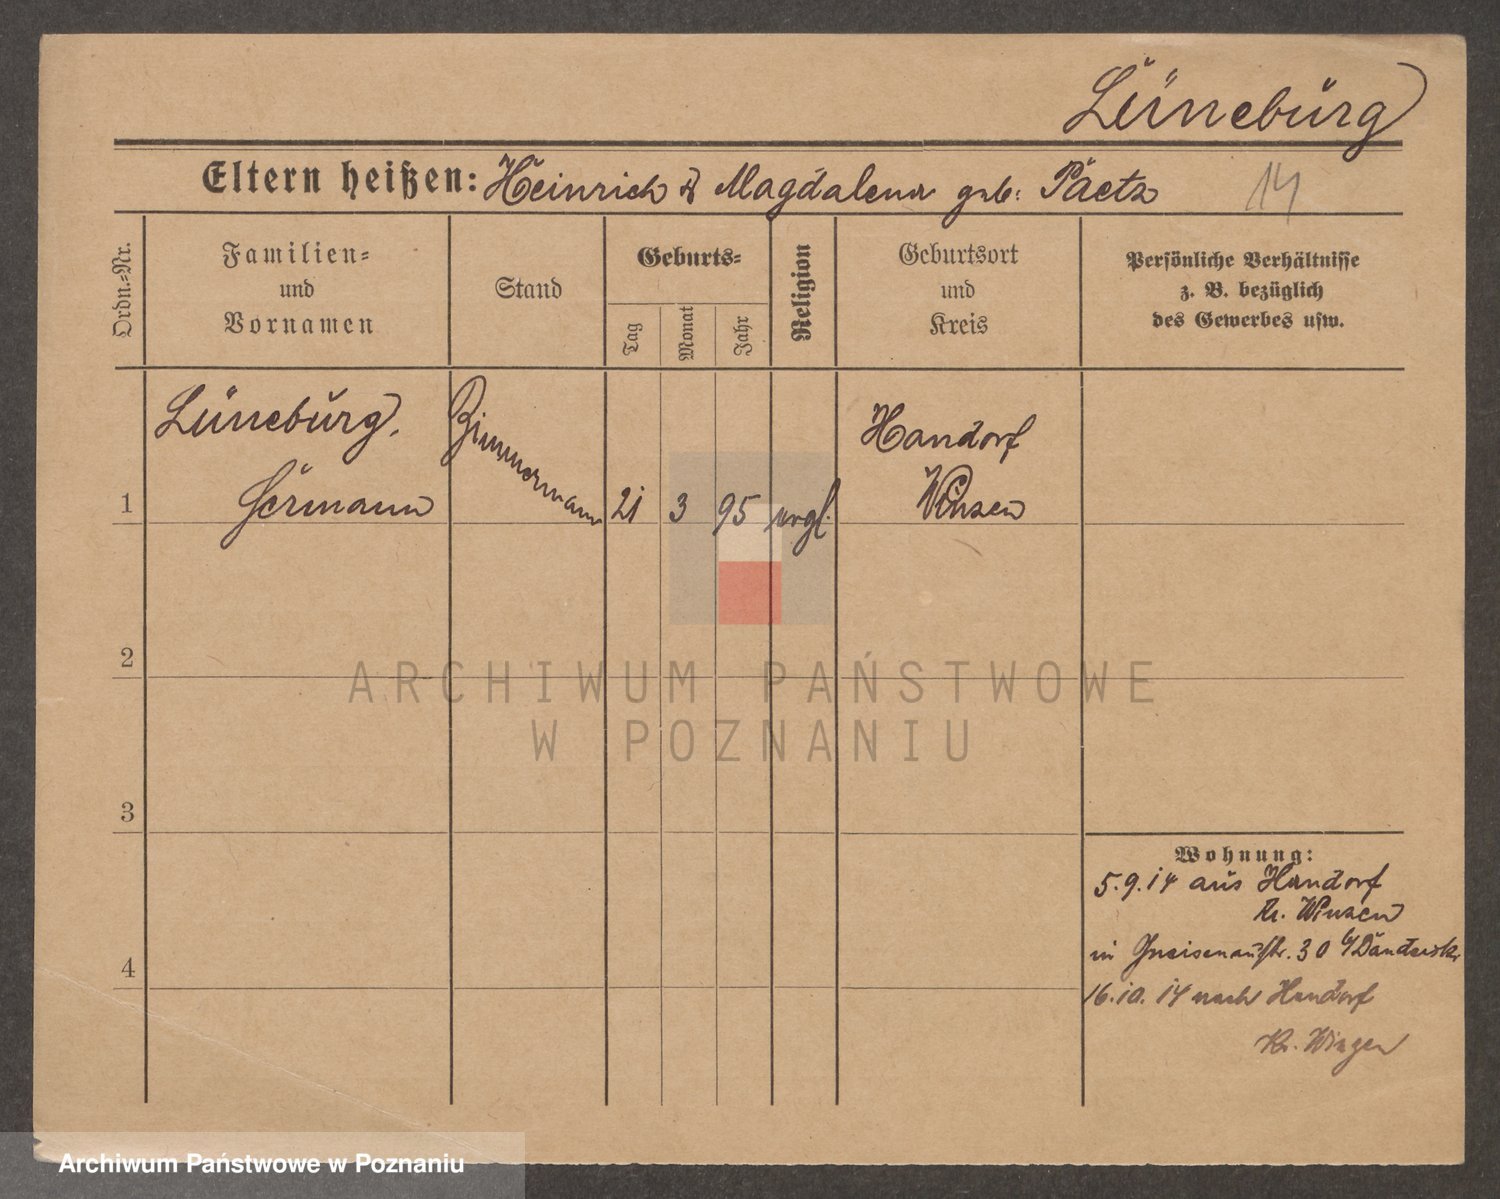 Lüneburg
Eltern heißen: Heinrich & Magdalena geb: Paetz
14
Ordn.-Nr.
Familien-
und
Vornamen
Stand
Geburts-
Tag
Monat
Jahr
Religion
Geburtsort
und
Kreis
Persönliche Verhältnisse
z. B. bezüglich
des Gewerbes usw.
Lüneburg,
Hermann
Zimmermann
1
21 3 95 evgl.
Handorf
Winsen
2
3
4
Wohnung:
5.9.14 aus Handorf
Kr. Winsen
in Gneisenaustr. 30 b/
16.10.14 nach Handorf
Kr. Winsen
ARCHIWUM PAŃSTWOWE
W POZNANIU
Archiwum Państwowe w Poznaniu